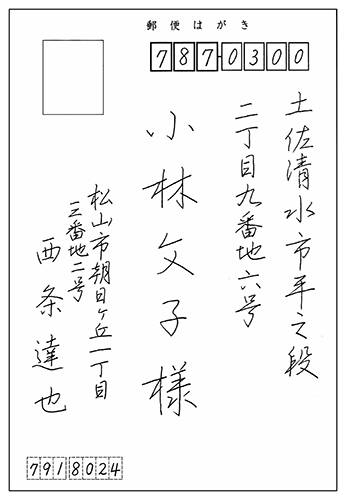 郵便はがき
787-0300
土佐清水市平之段
二丁目九番地六号
小林文子様
松山市朝日ヶ丘一丁目
三番地二号
西条達也
7918024